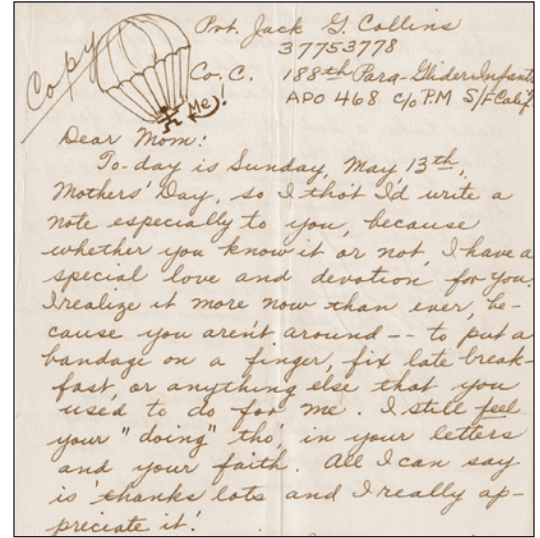 Copy
Pvt. Jack G. Collins
37753778
Co. C. 188th Para-Glider Infantr
APO 468 c/o P.M S/F Calif.
Me!
Dear Mom:
To-day is Sunday, May 13th,
Mothers' Day, so I tho't I'd write a
note especially to you, because
whether you know it or not, I have a
special love and devotion for you.
I realize it more now than ever, be-
cause you aren't around -- to put a
bandage on a finger, fix late break-
fast, or anything else that you
used to do for me. I still feel
your "doing" tho', in your letters
and your faith. All I can say
is 'thanks lots and I really ap-
preciate it!